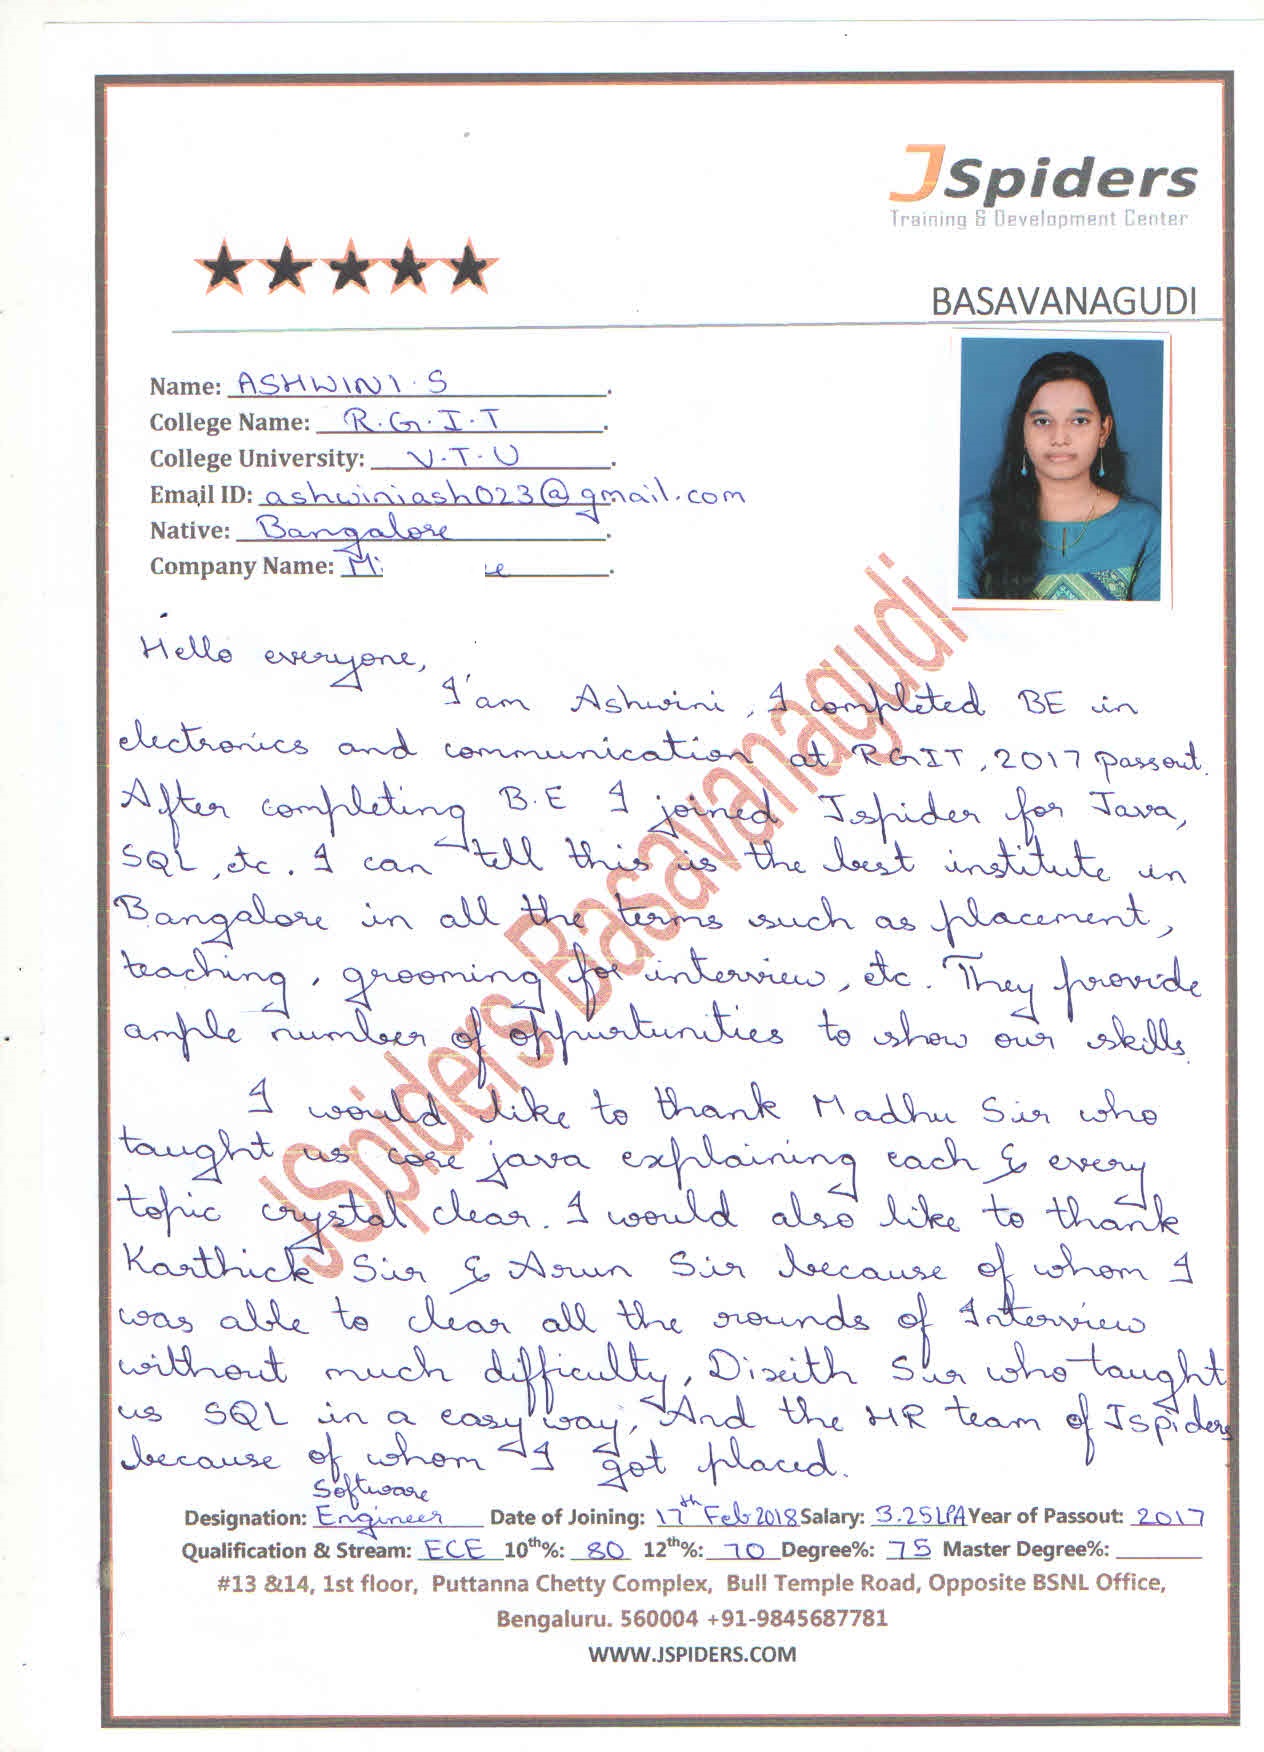 JSpiders
Training & Development Center
BASAVANAGUDI
Name: ASHWINI.S
College Name: R.G.I.T
College University: V.T.U
Email ID: ashwiniash023@gmail.com
Native: Bangalore
Company Name:
Hello everyone,
I'am Ashwini, I completed BE in
electronics and communication at RGIT, 2017 passout.
After completing B.E I joined Jspider for Java,
SQL, etc. I can tell this is the best institute in
Bangalore in all the terms such as placement,
teaching, grooming for interview, etc. They provide
ample number of oppurtunities to show our skills.
I would like to thank Madhu Sir who
taught us core java explaining each & every
topic crystal clear. I would also like to thank
Karthick Sir & Arun Sir because of whom I
was able to clear all the rounds of Interview
without much difficulty, Dixith Sir who taught
us SQL in a easy way, And the HR team of Jspiders
because of whom I got placed.
JSpiders Basavanagudi
Designation: Software Engineer Date of Joining: 17th Feb 2018 Salary: 3.25LPA Year of Passout: 2017
Qualification & Stream: ECE 10th%: 80 12th%: 70 Degree%: 75 Master Degree%:
#13 &14, 1st floor, Puttanna Chetty Complex, Bull Temple Road, Opposite BSNL Office,
Bengaluru. 560004 +91-9845687781
WWW.JSPIDERS.COM